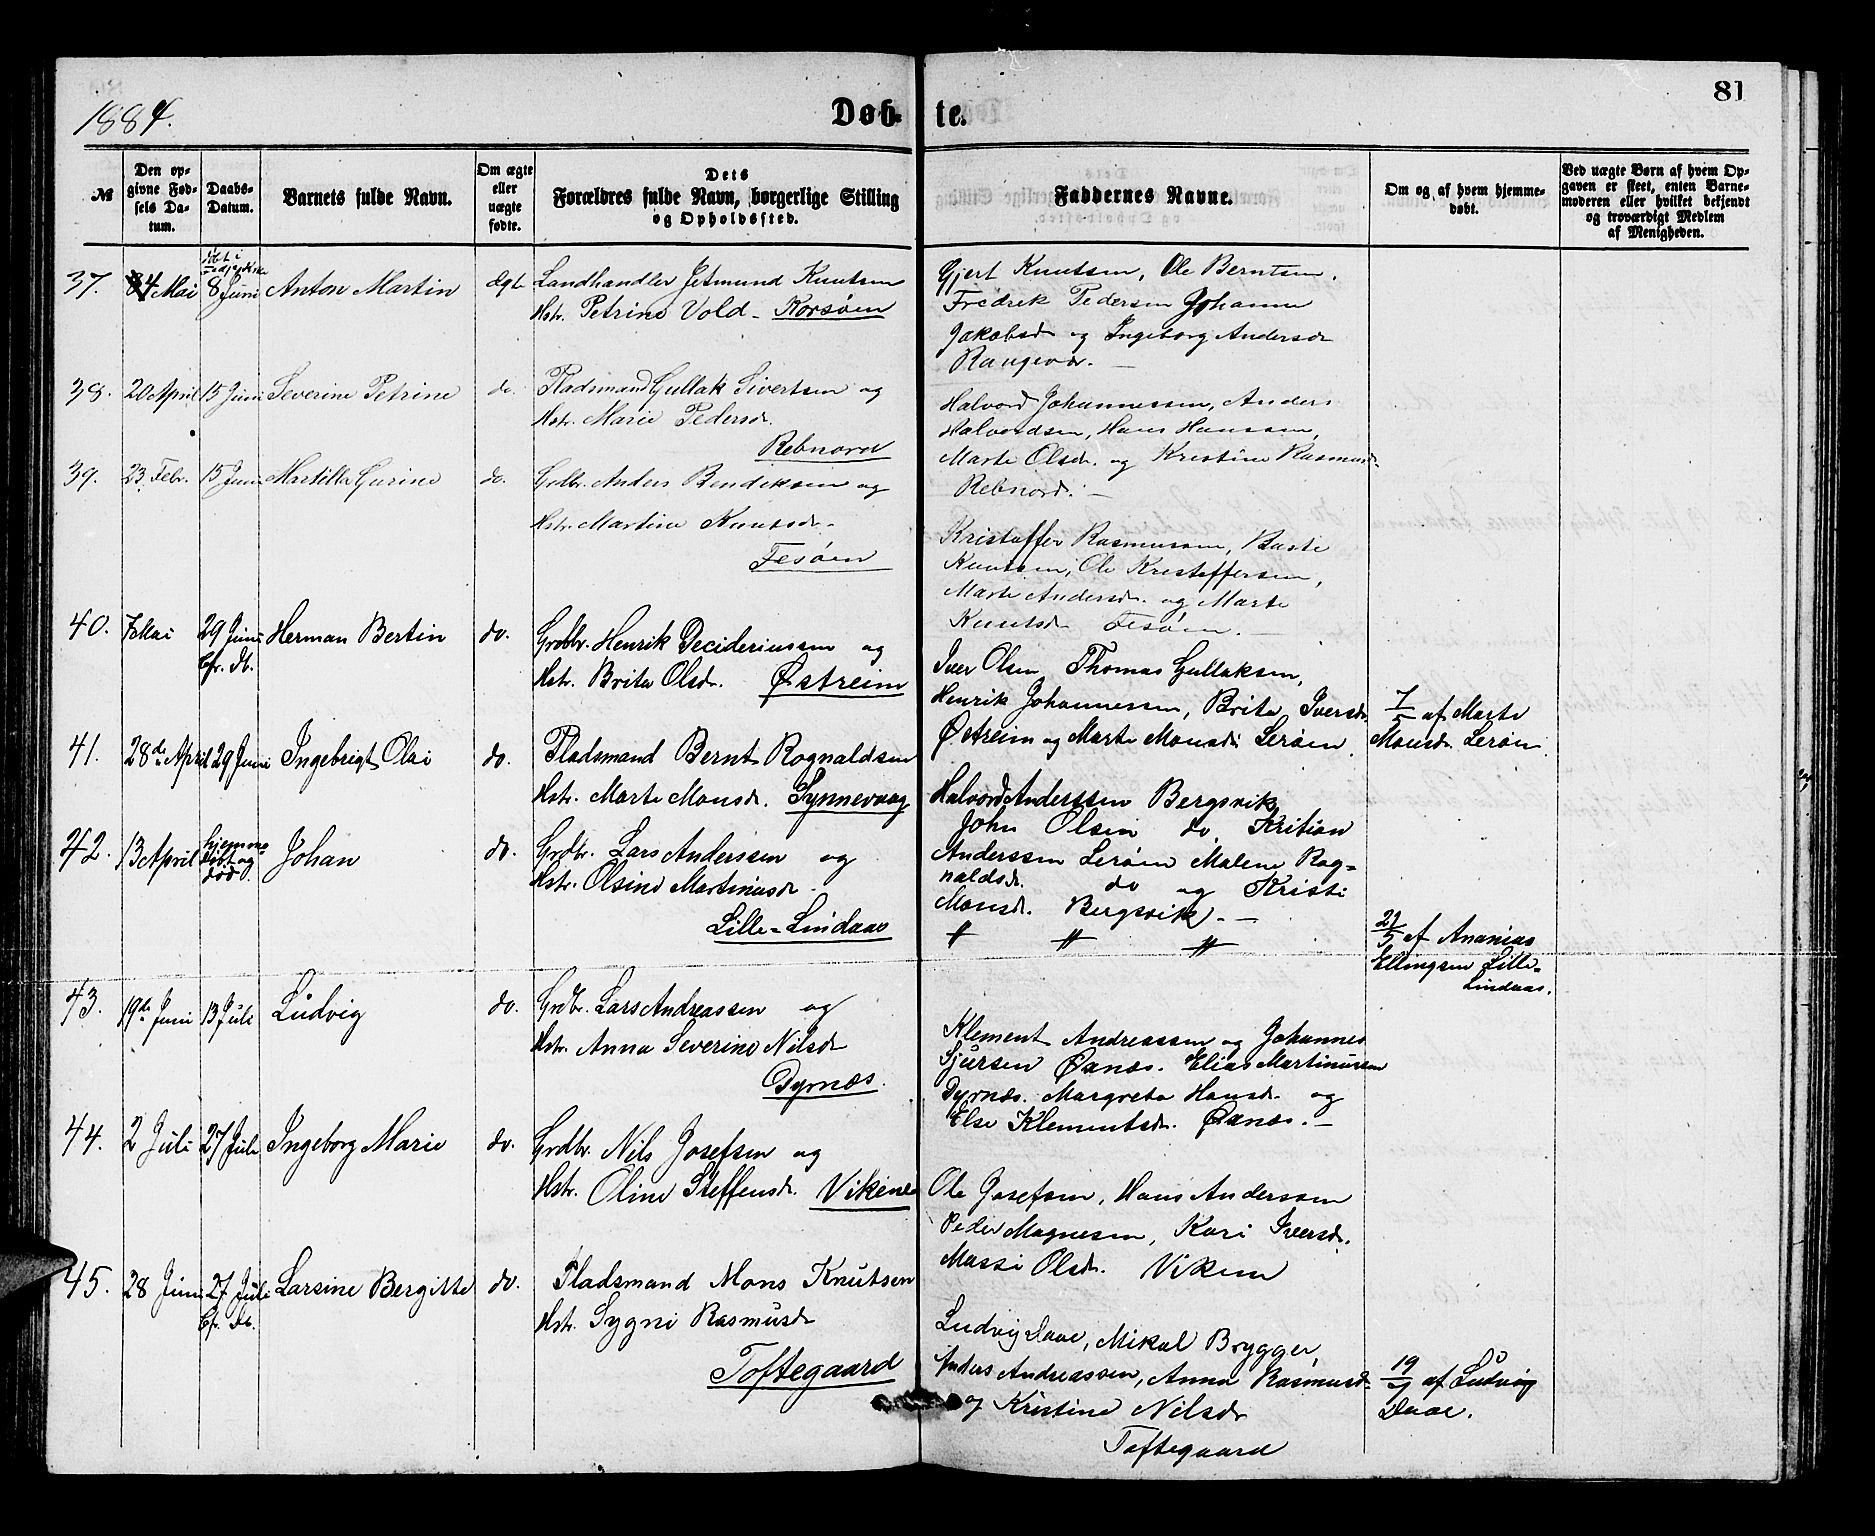 1884.
Døb-
te.
81
№
Den op-
givne Fød-
sels Da-
tum.
Daabs-
Datum.
Barnets fulde Navn.
Om ægte
eller
uægte
fødte.
Dets
Forældres fulde Navn, borgerlige Stilling
og Opholdssted.
Faddernes Navne.
Om og af hvem hjemme-
døbt.
Ved uægte Børn af hvem Op-
gaven er skeet, enten Barne-
moderen eller hvilket bekjendt
og troværdigt Medlem
af Menigheden.
37. Mai døbt i 8 Juni Anton Martin ægte Landhandler Jetmund Knutsen
Hstr. Petrine Vold - Korsøen
Gjert Knutsen, Ole Berntsen.
Fredrek Pedersen Johanne
Jakobsdr og Ingeborg Andersdr
38. 20 April 15 Juni Severine Petrine do. Pladsmand Gullak Sivertsen og
Hstr. Marie Pedersdr.
Rebnord
Halvord Johannessen, Anders
Halvordsen, Hans Hanssen,
Marte Olsdr. og Kristine Rasmusdr.
Rebnord. -
39. 23. Febr. 15 Juni Martille Gurine do. Grdbr. Anders Bendiksen og
Hstr. Martine Knutsdr.
Fesøen
Kristoffer Rasmussen, Baste
Knutsen, Ole Kristoffersen,
Marte Andersdr. og Marte
Knutsdr Fesøen. -
40. 7 Mai 29 Juni Herman Bertin do. Grdbr. Henrik Decideriussen og
Cfr. Db. Hstr. Brita Olsdr. Østreim
Iver Olsen Thomas Gullaksen,
Henrik Johannessen, Brite Iversdr
Østreim og Marte Monsdr Lerøen.
7/5 af Marte
Monsdr. Lerøen
41. 28de April 29 Juni Ingebrigt Olai do. Pladsmand Bernt Rognaldsen
Hstr. Marte Monsdr. Synnevaag
Halvord Anderssen Bergsvik,
John Olsen do, Kritian
Anderssen Lerøen Malene Rog-
naldsdr. do og Kristi
Monsdr. Bergsvik. -
42. 13 April hjemme
døbt og
død Johan do. Grdbr. Lars Anderssen og
Hstr. Olsine Martinusdr.
Lille-Lindaas
" " "
21/5 af Ananias
Ellingsen Lille-
Lindaas.
43. 19de Juni 13 Juli Ludvig do. Grdbr. Lars Andreassen og
Hstr. Anna Severine Nilsdr
Dyrnæs.
Klement Andreassen og Johannes
Sjursen Øxnæs. Elias Martinussen
Dyrnæs. Margreta Hansdr. og
Else Klementsdr. Øxnæs. -
44. 2 Juli 27 Juli Ingeborg Marie do. Grdbr. Nils Josefsen og
Hstr. Oline Steffensdr. Vikene
Ole Josefsen, Hans Anderssen
Peder Magnesen, Kari Iversdr.
Massi Olsdr. Vikene
45. 28 Juni 27 Juli Larsine Bergitte do. Pladsmand Mons Knutsen
Cfr. Db. Hstr. Sygni Rasmusdr
Toftegaard
Ludvig Daae, Mikal Brygger,
Anders Andreassen, Anna Rasmusdr.
og Kristine Nilsdr
Toftegaard
19/7 af Ludvig
Daae.